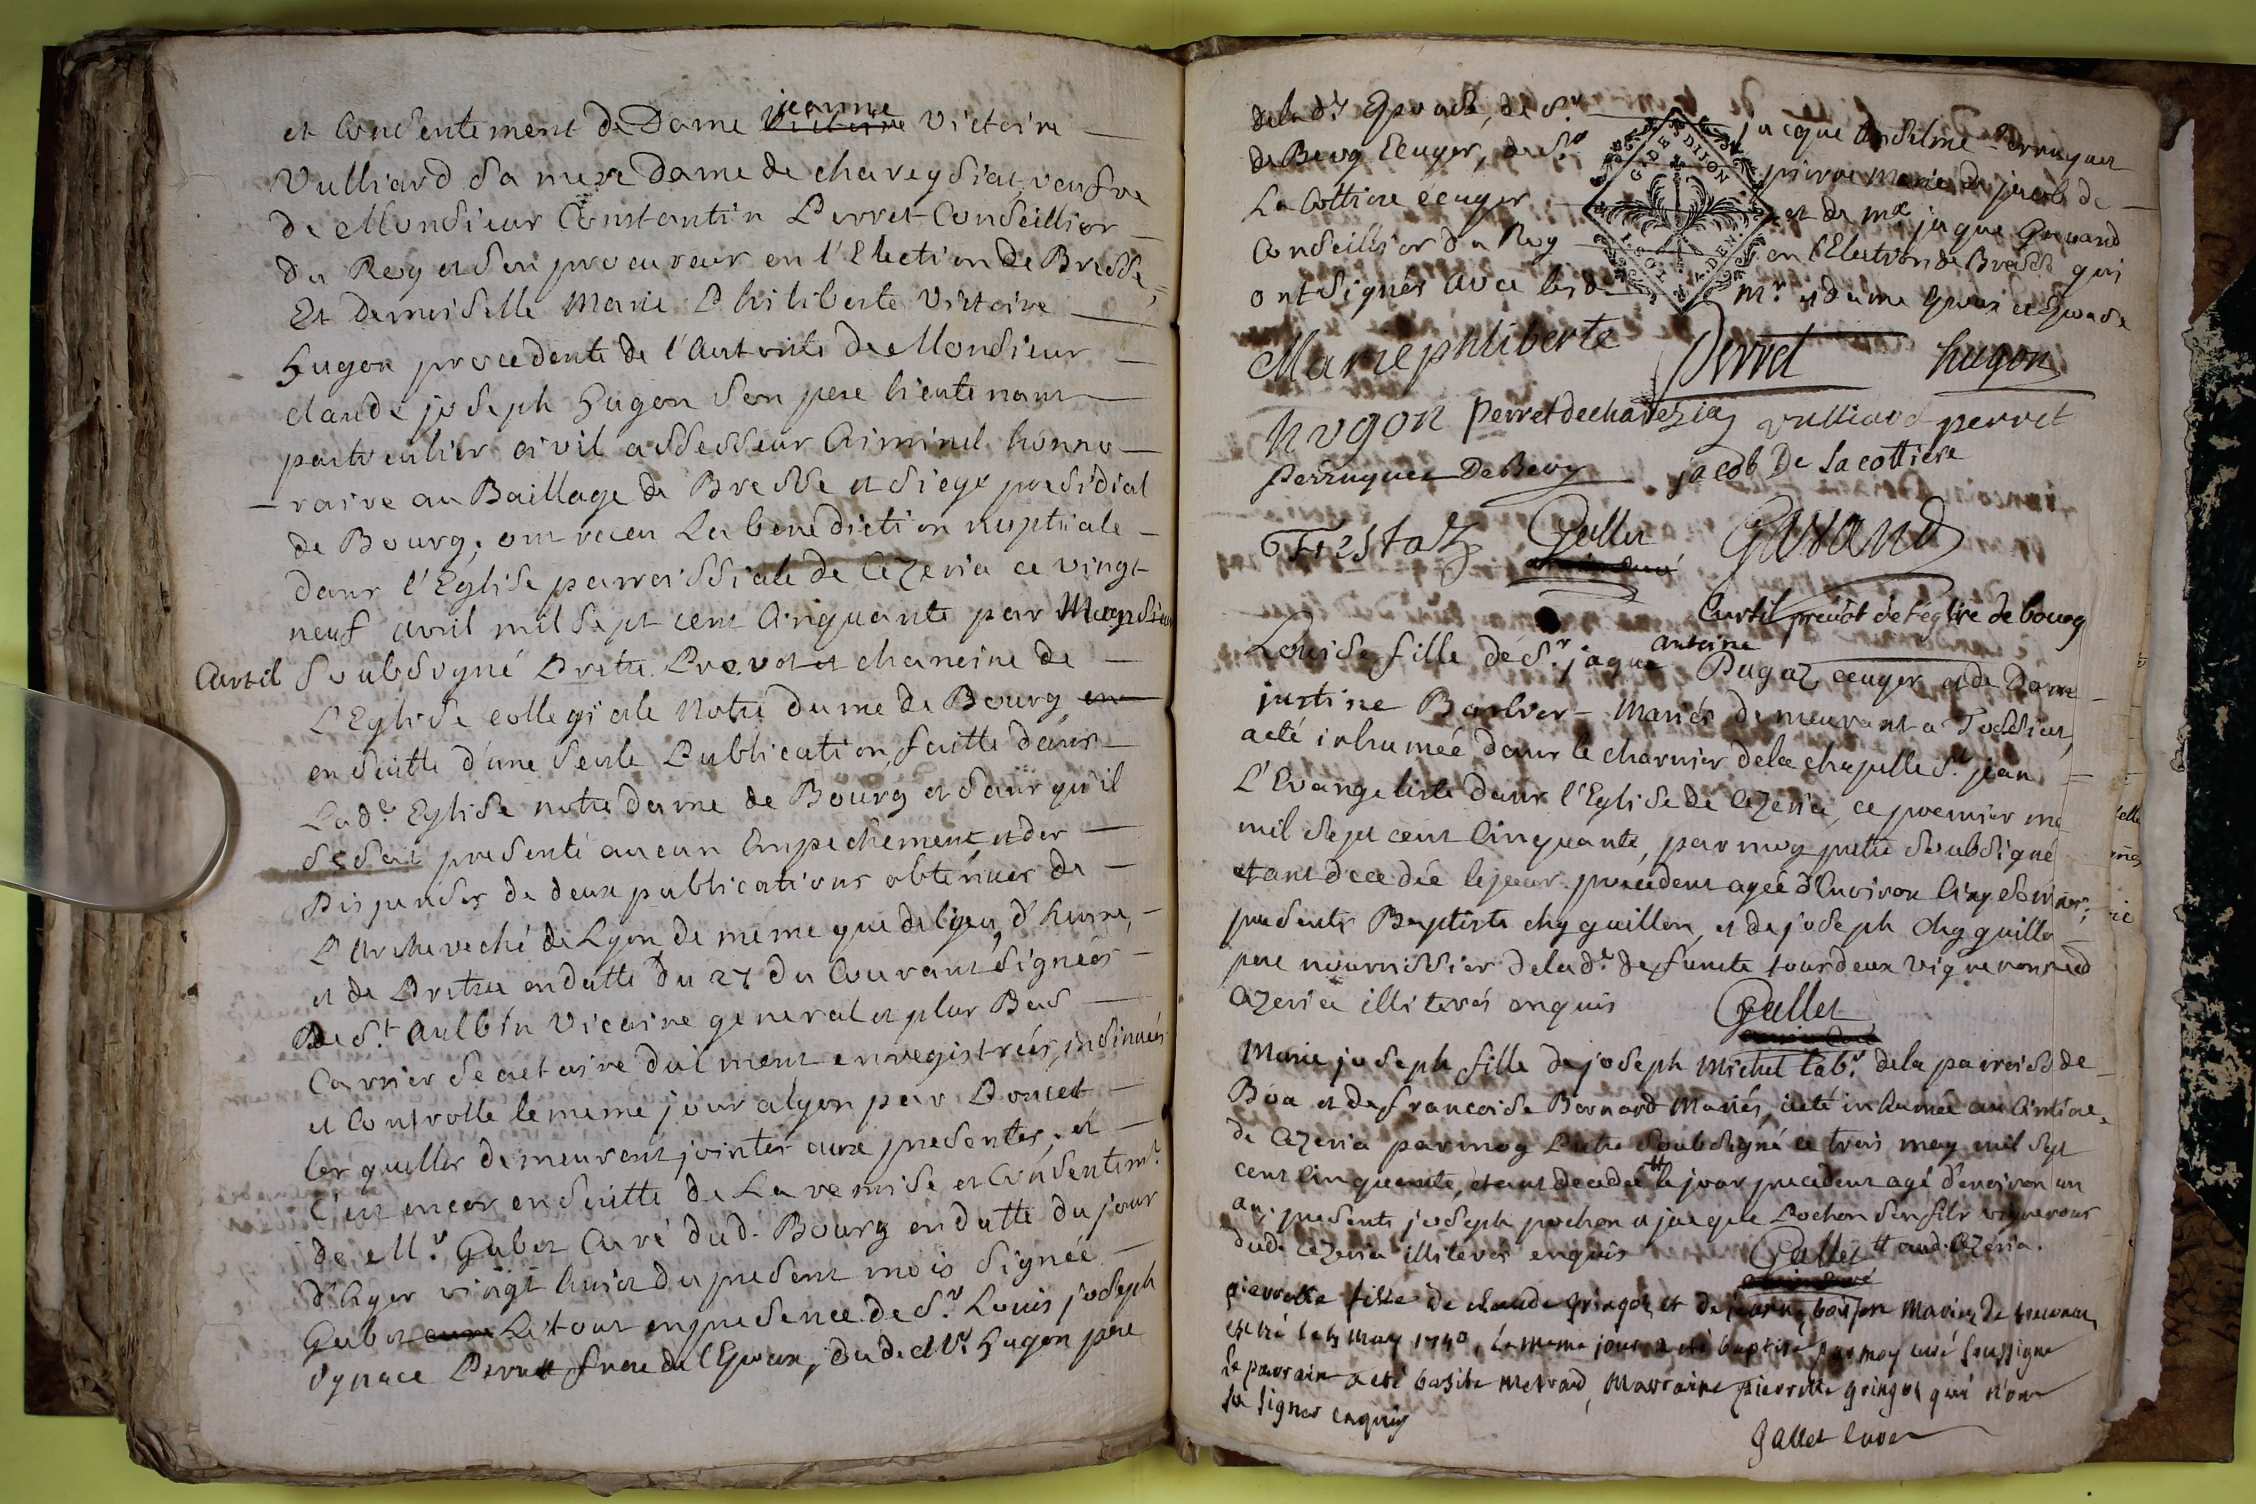 et Consentement de Dame jeanne Victoire
Vulliard Sa mere Dame de chareysiat veufve
de Monsieur Constantin Perret Conseillier
du Roy et Son procureur en l'Election de Bresse,
Et Demoiselle Marie Philiberte Victoire
Hugon procedente de l'Autorité de Monsieur
claude joseph Hugon Son pere lieutenant
particulier civil assesseur Criminel honno
raire au Baillage de Bresse et siege presidial
de Bourg, ont receu La benediction nuptiale
dans l'Eglise parroissiale de Cezeria ce vingt
neuf avril mil sept cent Cinquante par Monsieur
Curtil Soubsigné Pretre Prevot et chanoine de
L'Eglise collegiale Notre Dame de Bourg en
ensuitte d'une Seule Publication faitte dans
Lad.e Eglise notre dame de Bourg et Sans qu'il
se soit presenté aucun Empechement, et des
Dispenses de deux publications obtenues de
L'Archeveché de Lyon de même que de lieu, d'heure,
et de Pretre en datte du 27 du Courant Signées
De St. Aulbin Vicaire general et plus Bas
Carrier Secretaire duëment enregistrées, insinuées
et Controlle le meme jour a lyon par Poncet
les quelles demeurent jointes aux presentes, et
c'est encor ensuitte de La remise et Consentemt.
de Mr. Gubet Curé dud. Bourg en datte du jour
d'hyer vingt huict du present mois Signée
Gubet Le tout en presence de Sr. Louis joseph
Ignace Perret frere de l'Epoux, dud. Mr. Hugon pere
de lad.e Epouse, de Sr. jacque Anselme Perruquet
de Bevy Ecuyer, de Sr. pierre Marie de jacob de
La Cottiere écuyer et de Me. jaque Guvand
Conseiller du Roy en l'Election de Bresse qui
ont Signés avec lesd. Mr. et dame Epoux et Epouse
G. DE DIJON
Marie philiberte Perret hugon
hugon Perret de chareziaz vulliard perret
Perruquet De Bevy jacob De Lacottiere
Frestaz Gallet Guvand
Curtil prevôt de l'églize de bourg
Louise fille de Sr. jaque antoine Dugaz ecuyer et de Dame
justine Barbier Mariés demeurant a Tossiat,
a eté inhumée dans le charnier de la chapelle St. jean
L'Evangeliste dans l'Eglise de Cezeria, ce premier ma
mil sept cent Cinquante, par moy pretre Soubsigné
etant decedée le jour precedent ageé d'Environ Cinq semaines,
presents Baptiste chygguillon, et de joseph chygguillo
pere nourrissier de lad.e defuncte tous deux vignerons aud
Cezeria illiterés enquis Gallet
Marie joseph fille de joseph Michel labr. de la parroisse de
Böa et de francoise Bernard Mariés, a eté inhumée au Cimtiere
de Cezeria par moy Pretre Soubsigné ce trois may mil sept
cent Cinquante, etant decedée le jour precedent agé d'environ un
an, presents joseph pochon et jacque Pochon son fils vignerons
dud. Cezeria illiterés enquis Gallet aud. Cezeria.
pierrette fille de claude gringoz et de jeanne boisson Mariez de
est né le 5 May 1750, le meme jour a eté baptisé par moy curé soussigné
le parrain a eté basile Metrard, Marraine pierrette gringoz qui n'ont
su signer enquis
gallet curé